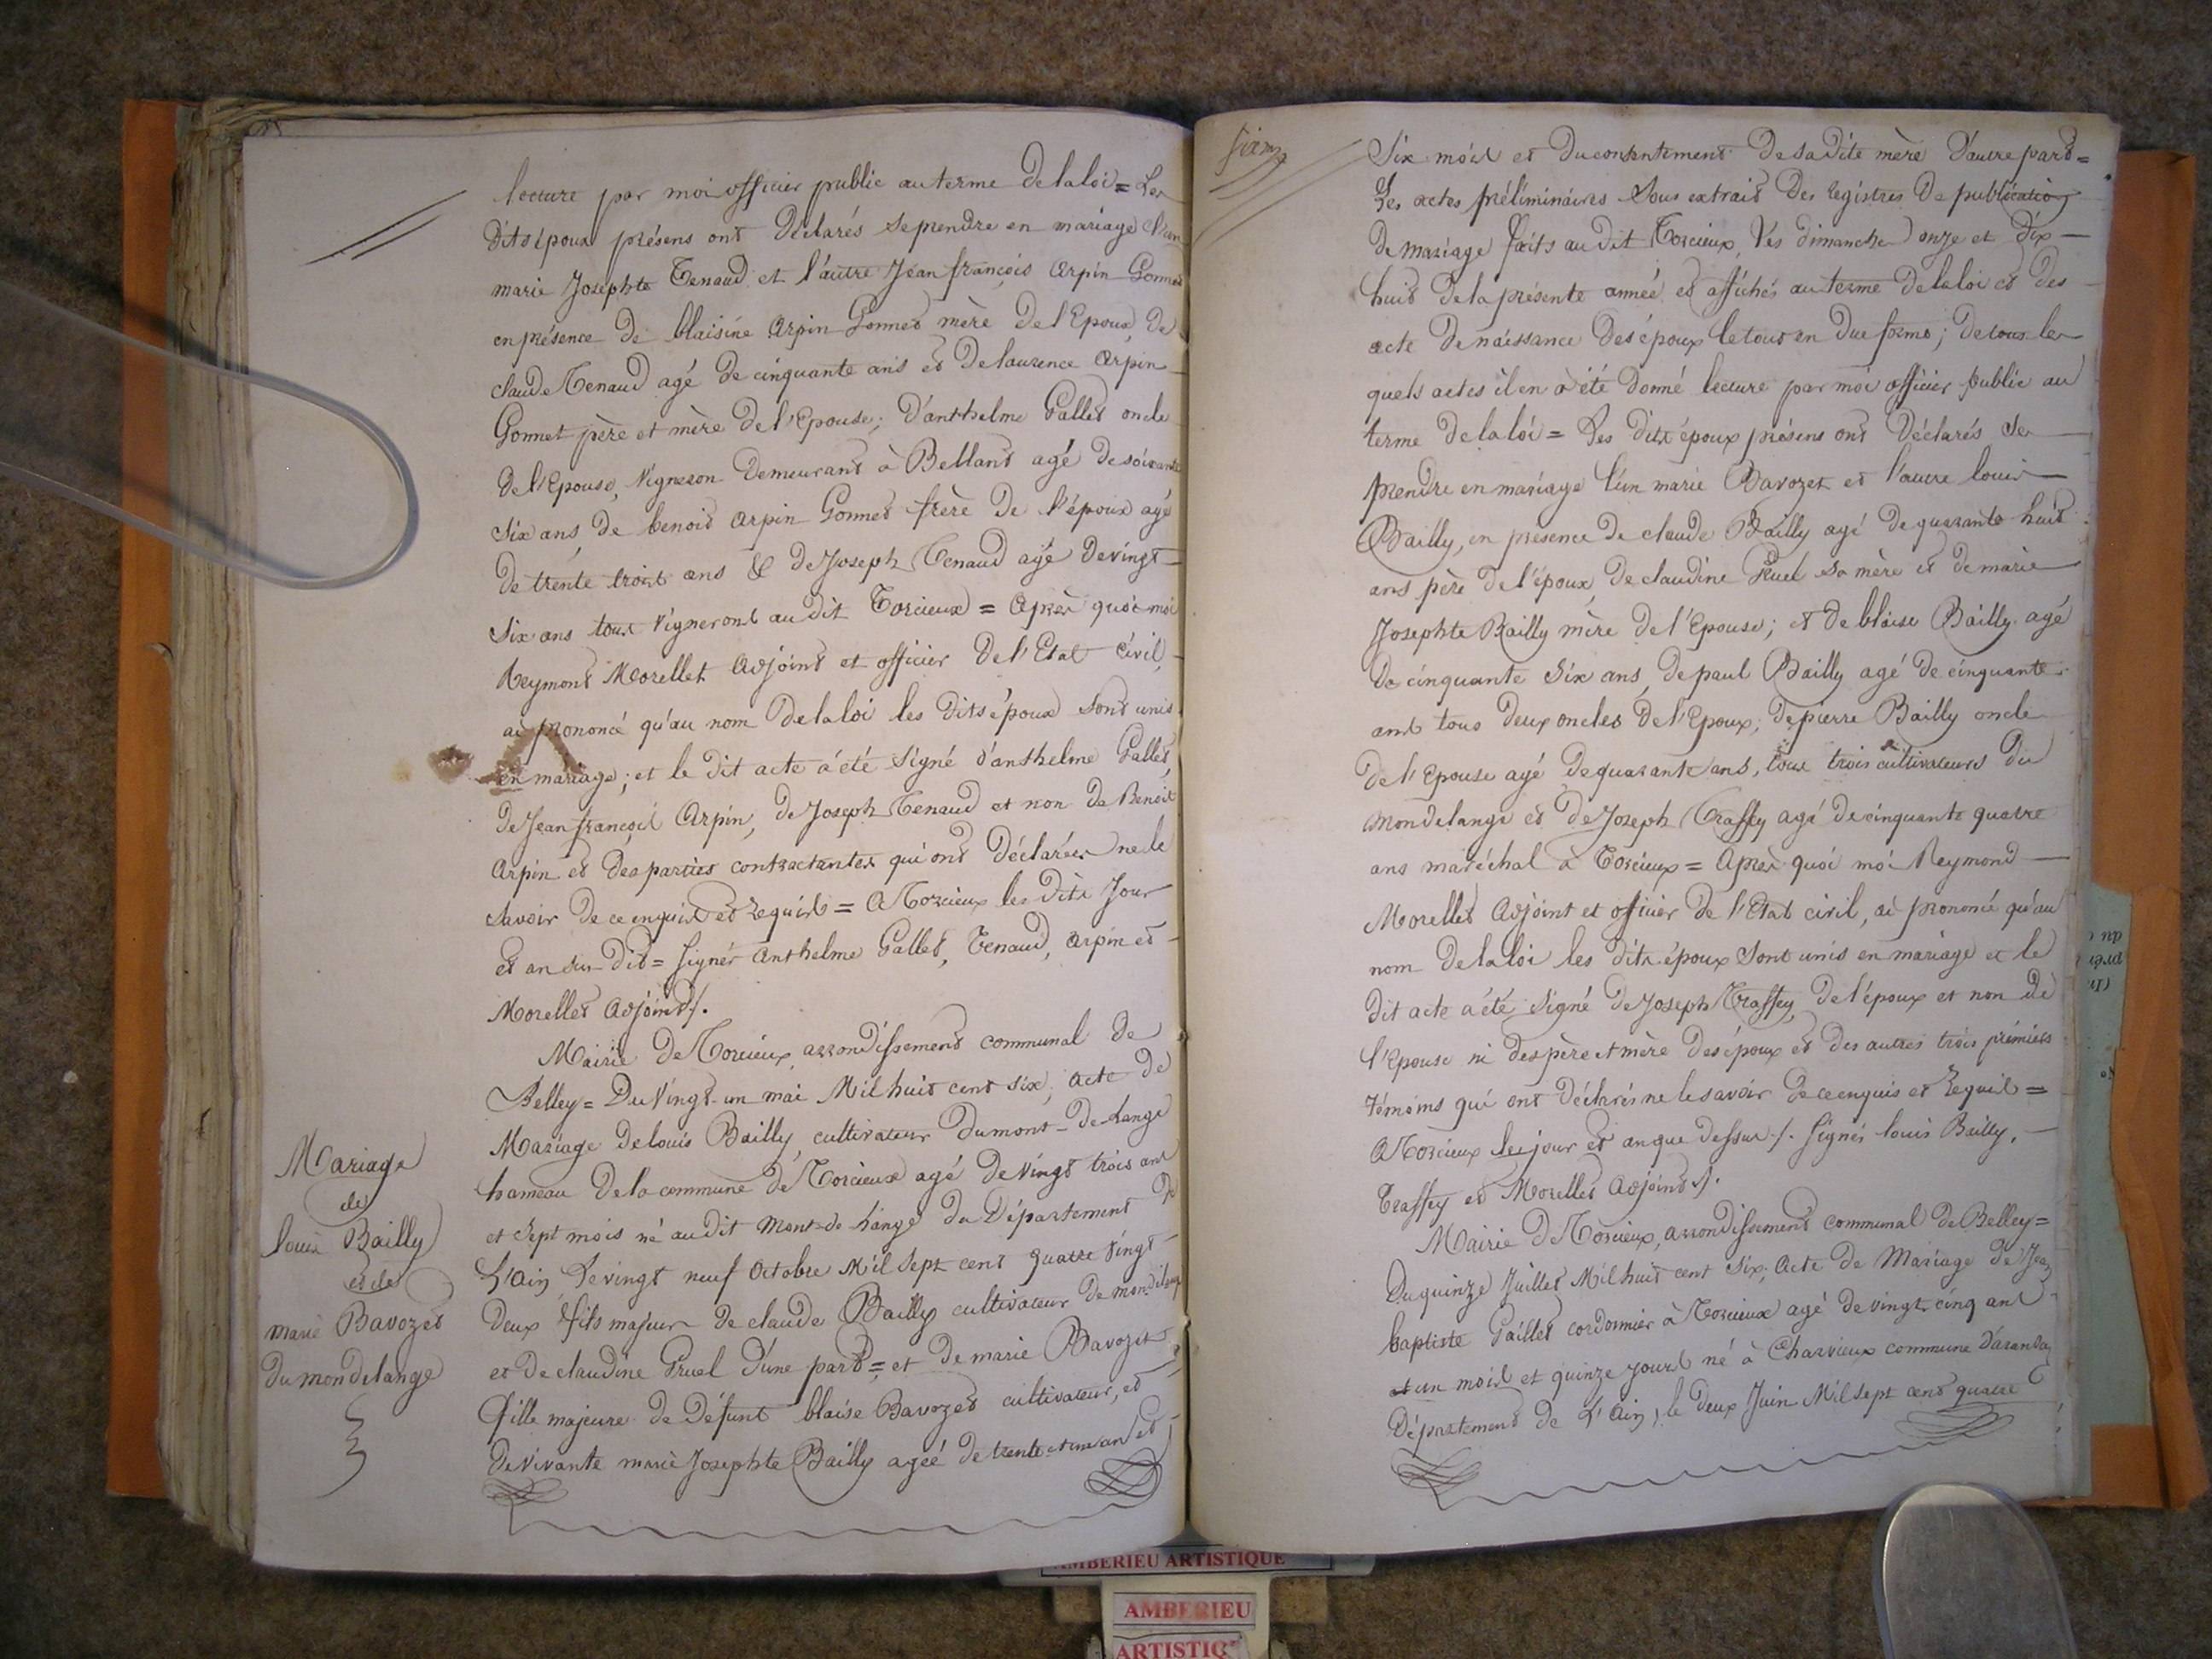 lecture par moi officier public au terme de la loi = Les
dits époux présens ont déclarés se prendre en mariage l'un
marie Josephte Tenaud et l'autre Jean françois Arpin Gonnet
en présence de blaisine Arpin Gonnet mère de l'Epoux, de
claude Tenaud agé de cinquante ans et de laurence Arpin
Gonnet père et mère de l'Epouse; d'anthelme Gallet oncle
de l'Epouse, Vigneron demeurant à Bettant agé de soixante
Six ans, de benoit Arpin Gonnet frère de l'époux agé
de trente trois ans & de Joseph Tenaud agé de vingt
Six ans tous Vignerons au dit Torcieux = Après quoi moi
Reymond Morellet Adjoint et officier de l'Etat civil,
ai prononcé qu'au nom de la loi les dits époux sont unis
en mariage; et le dit acte a été Signé d'anthelme Gallet,
de Jean françois Arpin, de Joseph Tenaud et non de Benoit
Arpin et des parties contractantes qui ont déclarées ne le
Savoir de ce enquis et requis = A Torcieux les dits Jour
et an sus-dit = Signés Anthelme Gallet, Tenaud, Arpin et
Morellet Adjoint /.
Mairie de Torcieux, arrondissement communal de
Belley = Du Vingt-un mai Mil huit cent six; Acte de
Mariage de louis Bailly, cultivateur du mont-de-Lange
hameau de la commune de Torcieux agé de vingt trois ans
et Sept mois né au dit Mont-de-hange du Département de
L'Ain, Le vingt neuf Octobre Mil Sept cent quatre Vingt
deux fils majeur de claude Bailly cultivateur de mondelange
et de claudine Gruel d'une part = et de marie Bavozet
fille majeure de défunt blaise Bavozet cultivateur, et
de vivante marie Josephte Bailly agée de trente et un an et
Mariage
de
louis Bailly
et de
marie Bavozet
du mondelange
Six
Six mois et du consentement de sa dite mère d'autre part =
Les actes préliminaires Sous extrait des registres de publication
de mariage faits au dit Torcieux, les dimanche onze et dix-
huit de la présente année et affichés au terme de la loi et des
acte de naissance des époux le tout en due forme; de tous les
quels actes il en a été donné lecture par moi officier public au
terme de la loi = Les dits époux présens ont déclarés se
prendre en mariage l'un marie Bavozet et l'autre louis
Bailly, en présence de claude Bailly agé de quarante huit
ans père de l'époux, de claudine Gruel sa mère et de marie
Josephte Bailly mère de l'Epouse; et de blaise Bailly agé
de cinquante Six ans, de paul Bailly agé de cinquante
ans tous deux oncles de l'Epoux, de pierre Bailly oncle
de l'Epouse agé de quarante ans, tous trois cultivateurs du
Mondelange et de Joseph Traffey agé de cinquante quatre
ans maréchal à Torcieux = Après quoi moi Reymond
Morellet Adjoint et officier de l'Etat civil, ai prononcé qu'au
nom de la loi les dits époux Sont unis en mariage et le
dit acte a été Signé de Joseph Traffey, de l'époux et non de
l'Epouse ni des père et mère des époux et des autres trois prémiers
témoins qui ont déclarés ne le savoir de ce enquis et requis =
A Torcieux les jour et an que dessus /. Signés louis Bailly,
Traffey et Morellet Adjoint /.
Mairie de Torcieux, arrondissement communal de Belley =
Du quinze Juillet Mil huit cent Six; Acte de Mariage de Jean
baptiste Gaillet cordonnier à Torcieux agé de vingt-cinq ans
et un mois et quinze jours né à Charvieux commune d'aranda
Département de L'Ain, le deux Juin Mil Sept cent quatre
AMBERIEU ARTISTIQUE
AMBERIEU
ARTISTIQ